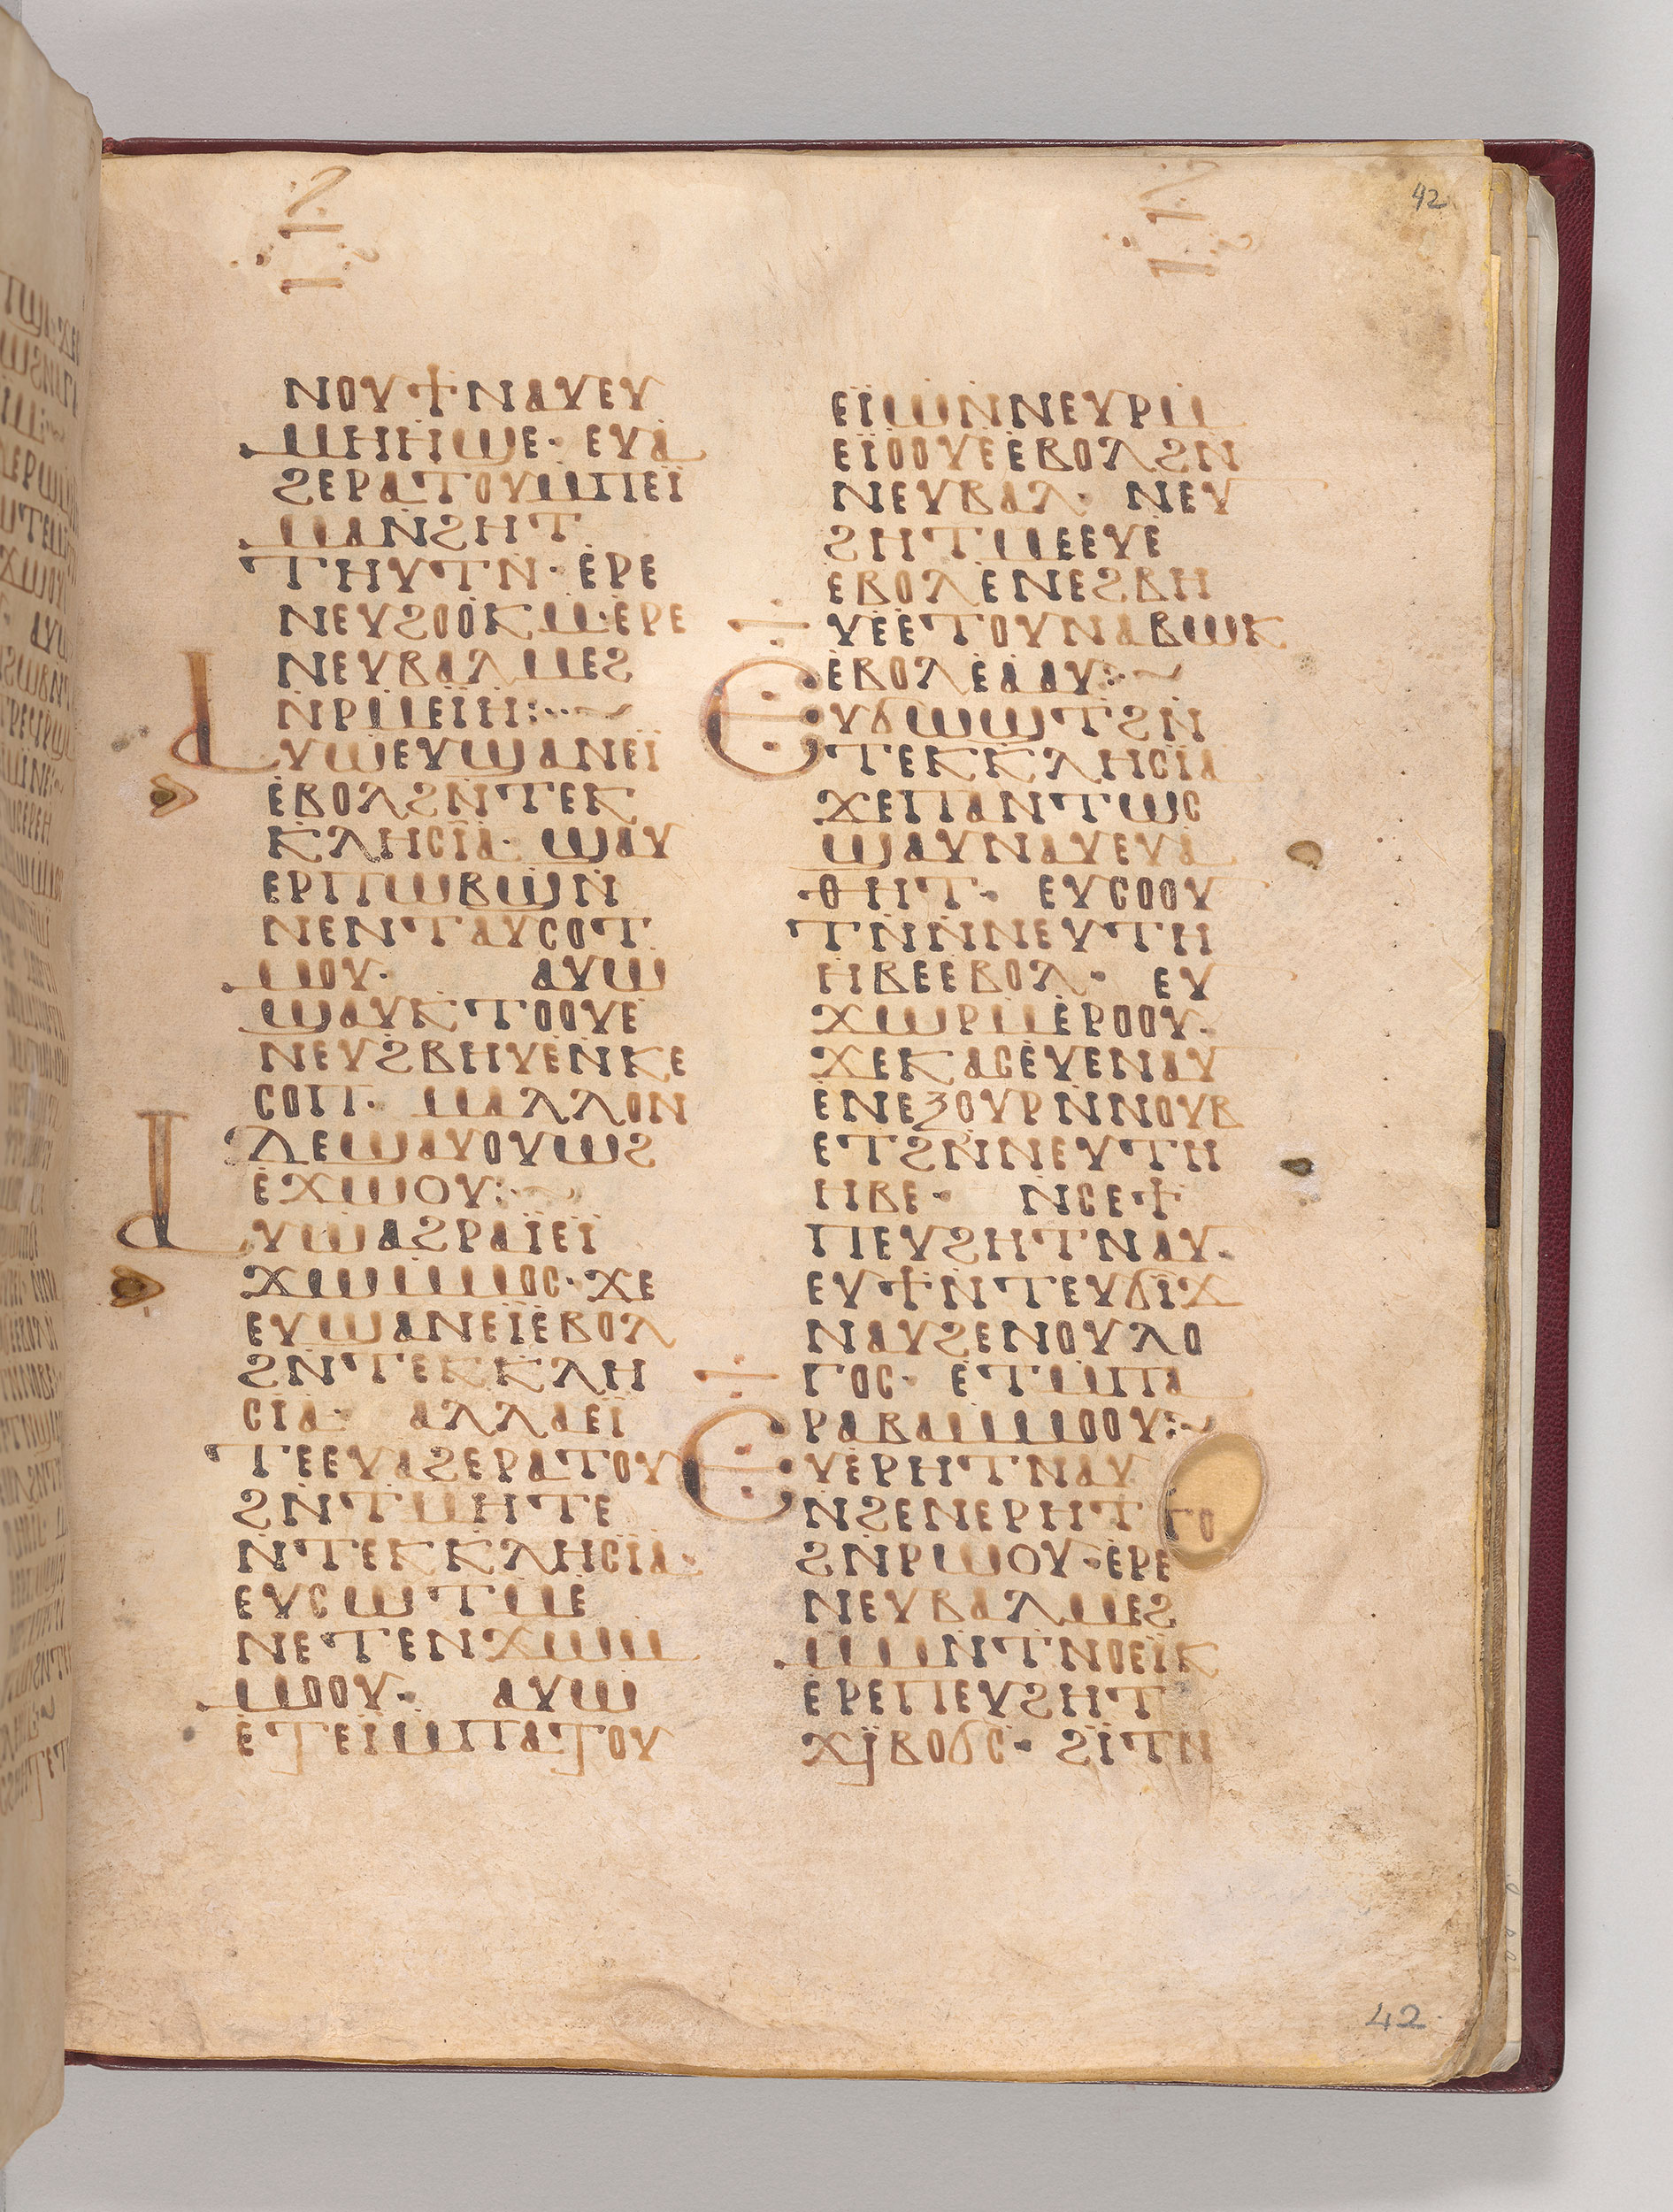 42
ⲛⲟⲩϯⲛⲁⲩⲉⲩ
ⲙⲏⲏϣⲉ· ⲉⲩⲁ
ϩⲉⲣⲁⲧⲟⲩⲙⲡⲉⲓ̈
ⲙⲁⲛ̇ϩⲏⲧ
ⲧⲏⲩⲧⲛ̇· ⲉ̇ⲣⲉ
ⲛⲉⲩϩⲟⲟⲕⲙ̇·ⲉ̇ⲣⲉ
ⲛⲉⲩⲃⲁⲗⲙⲉϩ
ⲛ̇ⲣⲙⲉⲓ̈ⲏ:·~
ⲁⲩⲱⲉⲩϣⲁⲛⲉⲓ̈
ⲉ̇ⲃⲟⲗϩⲛ̇ⲧⲉⲕ
ⲕⲗⲏⲥⲓ̈ⲁ· ϣⲁⲩ
ⲉⲣⲡⲱⲃϣⲛ̇
ⲛⲉⲛⲧⲁⲩⲥⲟⲧ
ⲙⲟⲩ· ⲁⲩⲱ
ϣⲁⲩⲕⲧⲟⲟⲩⲉ̇
ⲛⲉⲩϩⲃⲏⲩⲉ̇ⲛ̇ⲕⲉ
ⲥⲟⲡ· ⲙⲁⲗⲗⲟⲛ
ⲇⲉϣⲁⲩⲟⲩⲱϩ
ⲉ̇ϫⲱⲟⲩ:·~
ⲁⲩⲱⲁϩⲣⲁⲓ̈ⲉⲓ̈
ϫⲱⲙⲙⲟⲥ· ϫⲉ
ⲉⲩϣⲁⲛⲉⲓ̈ⲉ̇ⲃⲟⲗ
ϩⲛ̇ⲧⲉⲕⲕⲗⲏ
ⲥⲓ̈ⲁ· ⲁⲗⲗⲁⲉⲓ̈
ⲧⲉⲉⲩⲁϩⲉⲣⲁⲧⲟⲩ
ϩⲛ̇ⲧⲙⲏⲧⲉ
ⲛ̇ⲧⲉⲕⲕⲗⲏⲥⲓ̈ⲁ·
ⲉⲩⲥⲱⲧⲙⲉ̇
ⲛⲉⲧⲉⲛϫⲱⲙ
ⲙⲟⲟⲩ· ⲁⲩⲱ
ⲉ̇ⲧⲉⲓ̈ⲙⲡⲁⲧⲟⲩ
ⲉⲓ̈ⲱⲛ̇ⲛⲉⲩⲣⲙ
ⲉⲓ̈ⲟⲟⲩⲉ̇ⲉ̇ⲃⲟⲗϩⲛ̇
ⲛⲉⲩⲃⲁⲗ· ⲛⲉⲩ
ϩⲏⲧⲙⲉⲉⲩⲉ̇
ⲉⲃⲟⲗⲉ̇ⲛⲉϩⲃⲏ
ⲩⲉ̇ⲉ̇ⲧⲟⲩⲛⲁⲃⲱⲕ
ⲉ̇ⲃⲟⲗⲉ̇ⲁⲁⲩ:·~
ⲉⲩϭⲱϣⲧϩⲛ̇
ⲧⲉⲕⲕⲗⲏⲥⲓ̈ⲁ
ϫⲉⲡⲁⲛⲧⲱⲥ
ϣⲁⲩⲛⲁⲩⲉⲩⲁ
ⲑⲏⲧ· ⲉⲩⲥⲟⲟⲩ
ⲧⲛ̇ⲛ̇ⲛⲉⲩⲧⲏ
ⲏⲃⲉⲉⲃⲟⲗ· ⲉⲩ
ϫⲱⲣⲙⲉ̇ⲣⲟⲟⲩ·
ϫⲉⲕⲁⲥⲉ̇ⲩⲉⲛⲁⲩ
ⲉ̇ⲛⲉⲝⲟⲩⲣⲛ̇ⲛⲟⲩⲃ
ⲉⲧϩⲛ̇ⲛⲉⲩⲧⲏ
ⲏⲃⲉ· ⲛ̇ⲥⲉϯ
ⲡⲉⲩϩⲏⲧⲛⲁⲩ·
ⲉⲩϯⲛ̇ⲧⲉⲩϭⲓϫ
ⲛⲁⲩϩⲉⲛⲟⲩⲗⲟ
ⲅⲟⲥ· ⲉ̇ⲧⲙⲡⲁ
ⲣⲁⲃⲁⲙⲙⲟⲟⲩ:~
ⲉⲩⲉ̇ⲣⲏⲧⲛⲁⲩ
ⲛ̇ϩⲉⲛⲉⲣⲏⲧ ⲅⲟ
ϩⲛ̇ⲣⲱⲟⲩ·ⲉ̇ⲣⲉ
ⲛⲉⲩⲃⲁⲗⲙⲉϩ
ⲙⲙⲛ̇ⲧⲛⲟⲉⲓ̈ⲕ
ⲉ̇ⲣⲉⲡⲉⲩϩⲏⲧ
ϫⲓ̈ⲃⲟϭⲥ· ϩⲓ̈ⲧⲛ̇
42